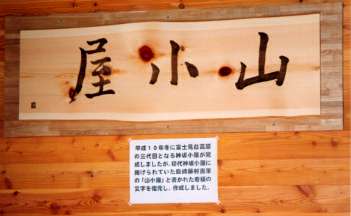 山小屋
平成10年冬に富士見台高原
の三代目となる神坂小屋が完
成しましたが、初代神坂小屋に
掲げられていた島崎藤村直筆
の「山小屋」と書かれた看板の
文字を復元し、作成しました。